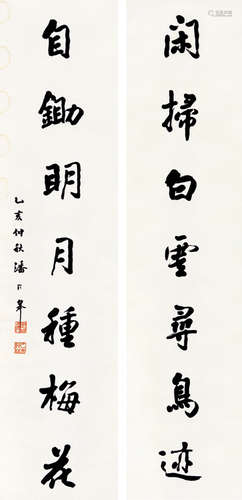 閑掃白雲尋鳥迹
自鋤明月種梅花
乙亥仲秋潘下皋